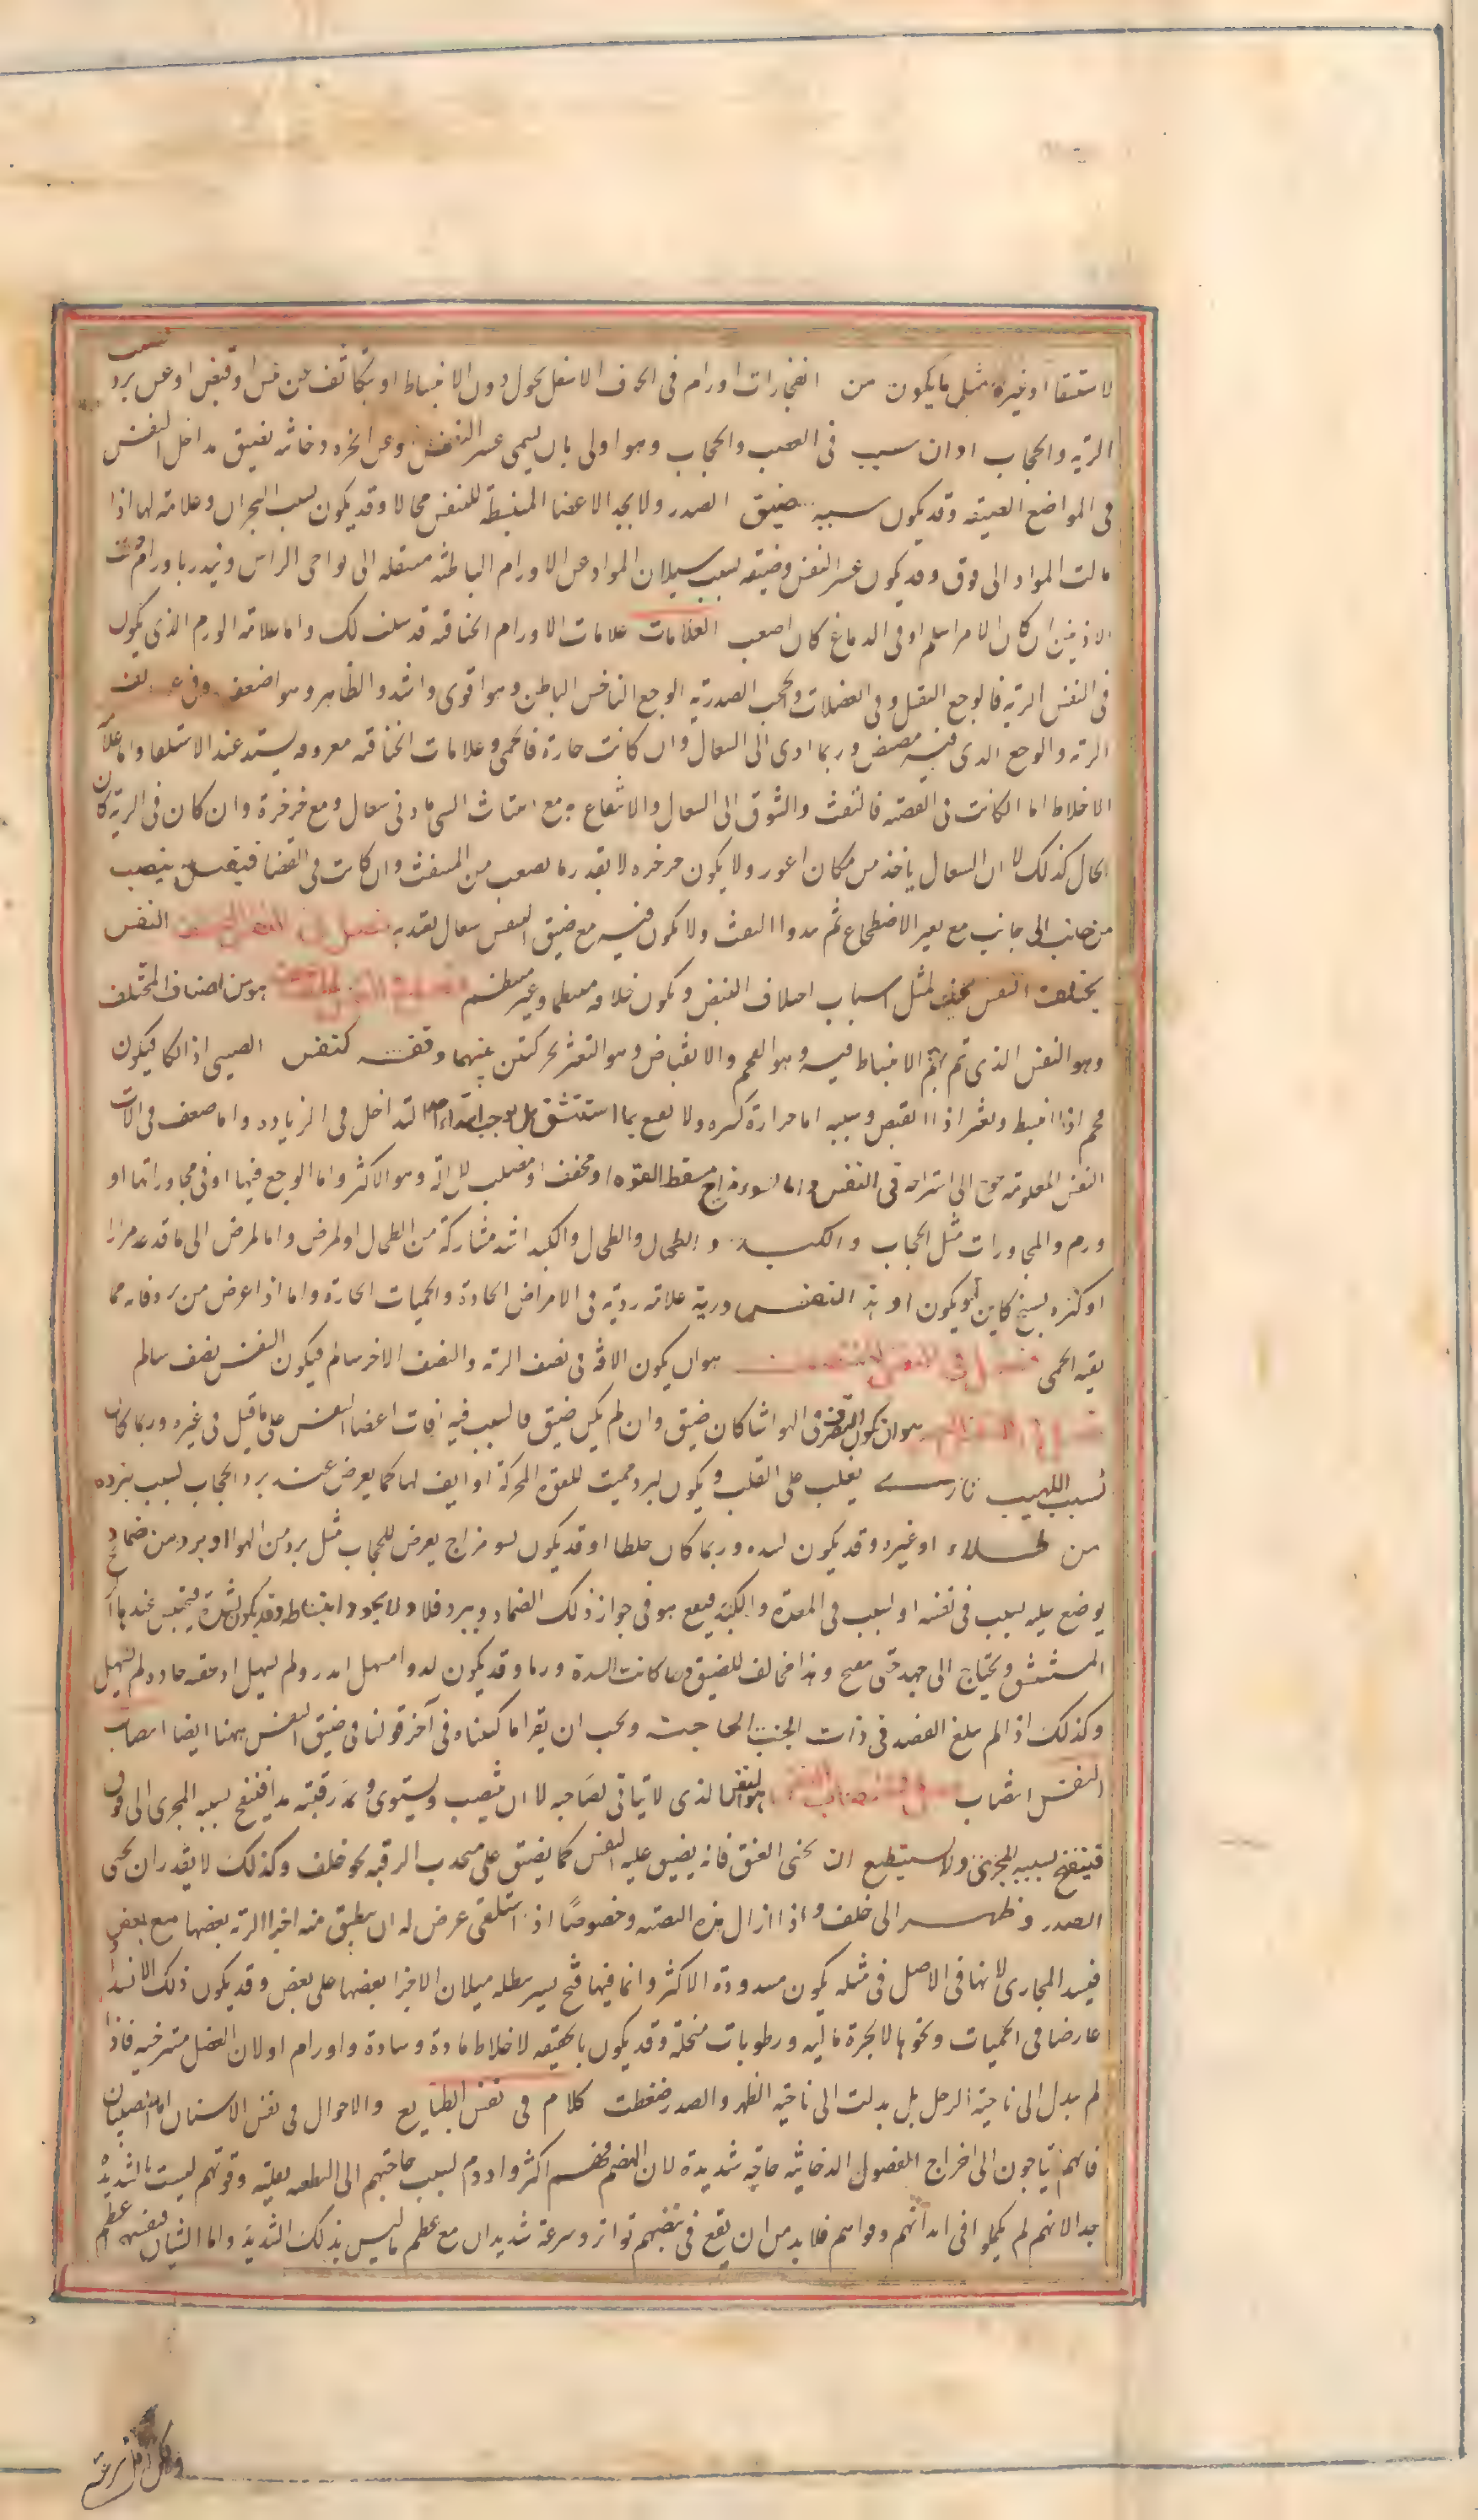 لاستسقا او غيره مثل ما يكون من انفجارات اورام فى الجوف الاسفل يحول دون الانبساط او بتكاثف عن يبس او قبض او عن برد يصيب
الريه والحجاب او ان سبب فى العصب والحجاب وهو اولى بان يسمى عسر النفس وعن ابخره دخانيه تضيق مداخل النفس
فى المواضع الضيقه وقد يكون سببه ضيق الصدر ولا يجد الاعضا المنبسطه للنفس مجالا وقد يكون بسبب البحران وعلامة لها اذا
مالت المواد الى فوق وقد يكون عسر النفس وضيقه بسبب سيلان المواد عن الاورام الباطنه منتقله الى نواحى الراس وينذر باورام تحت
الاذنين ان كان الامر اسلم او فى الدماغ كان اصعب العلامات علامات الاورام الخناقه قد سلف لك واما علامه الورم الذى يكون
فى النفس الريه فالوجع الثقيل وفى العضلات والحجب الصدريه الوجع الناخس الباطن وهو اقوى واشد والظاهر وهو اضعف وفى
الريه والوجع الذى فيه مصيص وربما ادى الى السعال وان كانت حارة فالحمى وعلامات الخناقه معروفه يشتد عند الاستلقا واما علامة
الاخلاط اما ان كانت فى القصبه فالنفث والشوق الى السعال والانتفاع به مع انتفاث الشى فى ادنى سعال ومع خرخرة وان كان فى الريه كان
الحال كذلك لا ان السعال ياخذ من مكان اغور ولا يكون خرخره لا بقدر ما يصعب من المنفث وان كانت فى الفضا فيثقل ينصب
من جانب الى جانب مع تغير الاضطجاع ثم يبدوا النفث ولا يكون فيه مع ضيق النفس سعال يعتد به فصل فى النفس المختلف النفس
يختلف النفس يختلف لمثل اسباب اختلاف النبض ويكون خلافه منتظما وغير منتظم هو من اصناف المختلف
وهو النفس الذى تم يتم الانبساط فيه وهو الفحم والانقباض وهو التعثر بحركتين بينهما وقفه كنفس الصبى اذا بكا فيكون
فحم اذا انبسط وتعثر اذا انقبض وسببه اما حرارة كثيره ولا يقنع بما استنشق بل يوجب ابتداء التداخل فى الزياده واما ضعف فى الات
النفس المعلومه يحوج الى استراحه فى النفس واما لسوء مزاج مسقط القوه او مجفف او مصلب للاله وهو الاكثر واما لوجع فيها او فى مجاوراتها او
ورم والمجاورات مثل الحجاب والكبد والطحال والطحال والكبد اشد مشاركة من الطحال او لمرض واما لمرض الى ما قد عد مرارا
او كثره تشنج كاين او يكون او هذا النفس وريه علامه رديه فى الامراض الحادة والحميات الحارة واما اذا عرض من برد فانه مما
يقيه الحمى فصل فى النفس المنتصف هو ان يكون الافه فى نصف الريه والنصف الاخر سالم فيكون النفس نصف سالم
هو ان يكون التصرف فى الهوا شاقا كان ضيق وان لم يكن ضيق فالسبب فيه افات اعضا النفس على ما قيل فى غيره وربما كان
بسبب اللهيب نارى يغلب على القلب ويكون لبرد مميت للقوة المحركة او ايف لها كما يعرض عند برد الحجاب لسبب ببرده
من طلاء او غيره وقد يكون لسده وربما كان خلطا او قد يكون لسو مزاج يعرض للحجاب مثل برد من الهوا او برد من ضماد
يوضع عليه بسبب فى نفسه او لسبب فى المعدة والكبد فيقع هو فى جوار ذلك الضماد ويبرد فلا ولا يجود انبساطه وقد يكون لسدة فيحتبس عندها
المستنشق ويحتاج الى جهد حتى ينفتح وهذا مخالف للضيق وما كانت السدة ورما وقد يكون لدوا مسهل اندر ولم يسهل او حقنه حاده لم تسهل
وكذلك اذا لم يبلغ الفصد فى ذات الجنب الحاجت ويجب ان يقرا ما كتبناه فى آخر قولنا فى ضيق النفس ههنا ايضا انتصاب
النفس انتصاب فصل فى انتصاب النفس هو النفس الذى لا يتاتى لصاحبه لا ان ينتصب ويستوى ويمد رقبته مدا فينفتح بسببه المجرى الى فوق
فينفتح بسببه المجرى ولا يستطيع ان يحنى العنق فانه يضيق عليه النفس كما يضيق على منجذب الرقبه نحو خلف وكذلك لا يقدر ان يحنى
الصدر وظهر الى خلف واذا ازال هذه النصبه وخصوصًا اذا استلقى عرض له ان ينطبق منه اجزا الريه بعضها مع بعض
فيسد المجارى لانها فى الاصل فى مثله يكون مسدودة الاكثر وانما فيها فتح يسير يبطله ميلان الاجزا بعضها على بعض وقد يكون ذلك الانسداد
عارضا فى الحميات ونحوها لابخرة ماليه ورطوبات منحلة وقد يكون بالحقيقه لاخلاط مادة وسادة واورام او لان العضل مسترخيه فاذا
لم يدل الى ناحية الرجل بل يدلت الى ناحية الظهر والصدر ضغطت كلام فى نفس الطبايع والاحوال فى نفس الاسنان اما الصبيان
فانهم يحتاجون الى اخراج الفضول الدخانيه حاجه شديدة لان الهضم فيهم اكثر وادوم لسبب حاجتهم الى التغذيه وقوتهم ليست بالشديدة
جدا لانهم لم يكملوا فى ابدانهم وقواهم فلا بد من ان يقع فى نفسهم تواتر وسرعة شديدان مع عظم ليس بذلك الشديد واما الشبان فنفسهم اعظم
ولكن اقل سرعة